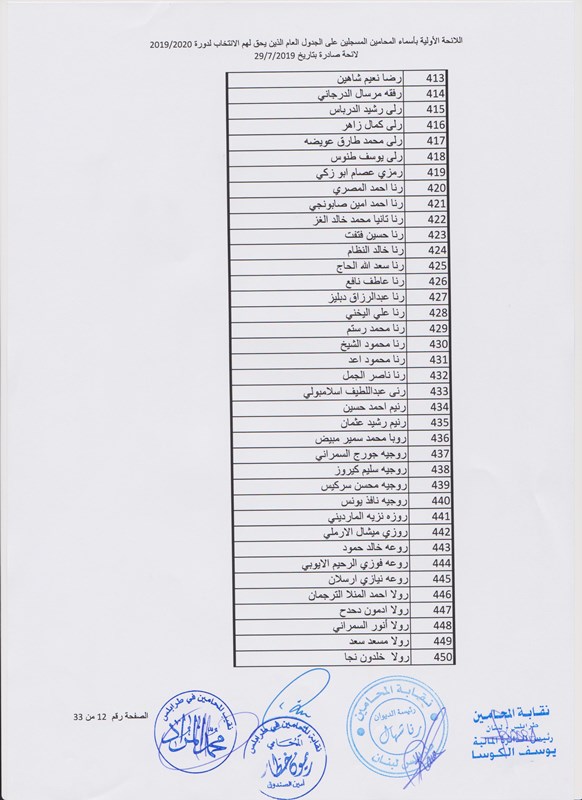 اللائحة الأولية بأسماء المحامين المسجلين على الجدول العام الذين يحق لهم الانتخاب لدورة 2019/2020
لائحة صادرة بتاريخ 29/7/2019
413 رضا نعيم شاهين
414 رفقه مرسال الدرجاني
415 رلى رشيد الدرباس
416 رلى كمال زاهر
417 رلى محمد طارق عويضه
418 رلى يوسف طنوس
419 رمزي عصام ابو زكي
420 رنا احمد المصري
421 رنا احمد امين صابونجي
422 رنا تانيا محمد خالد الغز
423 رنا حسين فتفت
424 رنا خالد النظام
425 رنا سعد الله الحاج
426 رنا عاطف نافع
427 رنا عبدالرزاق دبليز
428 رنا علي اليخني
429 رنا محمد رستم
430 رنا محمود الشيخ
431 رنا محمود اعد
432 رنا ناصر الجمل
433 رنى عبداللطيف اسلامبولي
434 رنيم احمد حسين
435 رنيم رشيد عثمان
436 روبا محمد سمير مبيض
437 روجيه جورج السمراني
438 روجيه سليم كيروز
439 روجيه محسن سركيس
440 روجيه نافذ يونس
441 روزه نزيه المارديني
442 روزي ميشال الارملي
443 روعه خالد حمود
444 روعه فوزي الرحيم الايوبي
445 روعه نيازي ارسلان
446 رولا احمد المنلا الترجمان
447 رولا ادمون دحدح
448 رولا أنور السمراني
449 رولا مسعد سعد
450 رولا خلدون نجا
الصفحة رقم 12 من 33
نقيب المحامين في طرابلس
محمد المراد
نقابة المحامين في طرابلس
المحامي
ريمون خطار
أمين الصندوق
نقابة المحامين
رئيسة الديوان
رنا
طرابلس لبنان
نقابة المحامين
طرابلس لبنان
رئيس الدائرة المالية
يوسف الكوسا